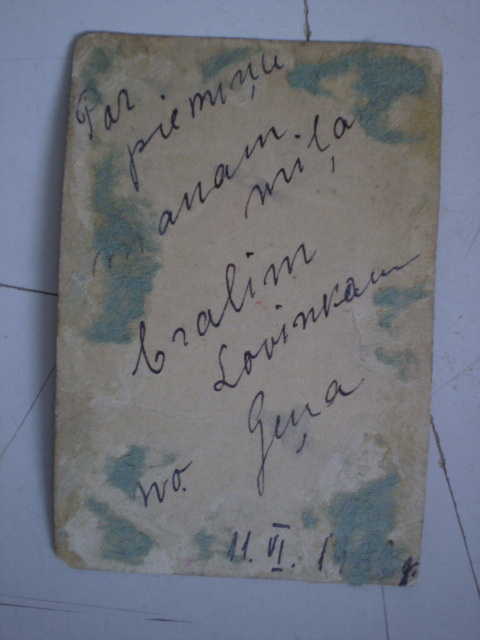 Par
piemiņu
manam
mīļa
bralim
Lovinkam
no Geņa
11. VI. 1
g.